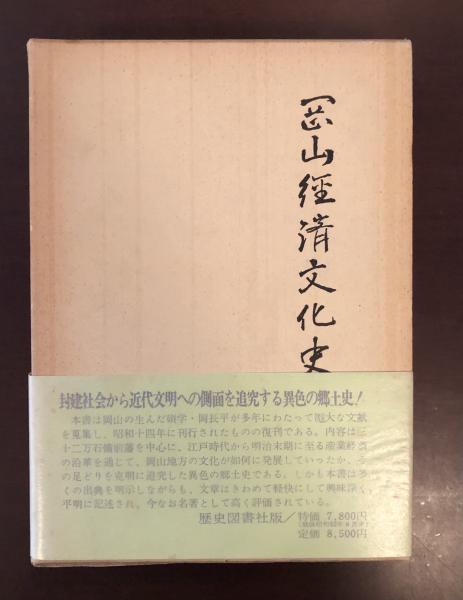 岡山經濟文化史
封建社会から近代文明への側面を追究する異色の郷土史！
本書は岡山の生んだ碩学・岡長平が多年にわたって厖大な文献
を蒐集し、昭和十四年に刊行されたものの復刊である。内容は三
十二万石備前藩を中心に、江戸時代から明治末期に至る産業経済
の沿革を通じて、岡山地方の文化が如何に発展していったか、そ
の足どりを克明に追究した異色の郷土史である。しかも本書は多
くの出典を明示しながらも、文章はきわめて軽快にして興味深く
平明に記述され、今なお名著として高く評価されている。
歴史図書社版／特価 7,800円
定価 8,500円